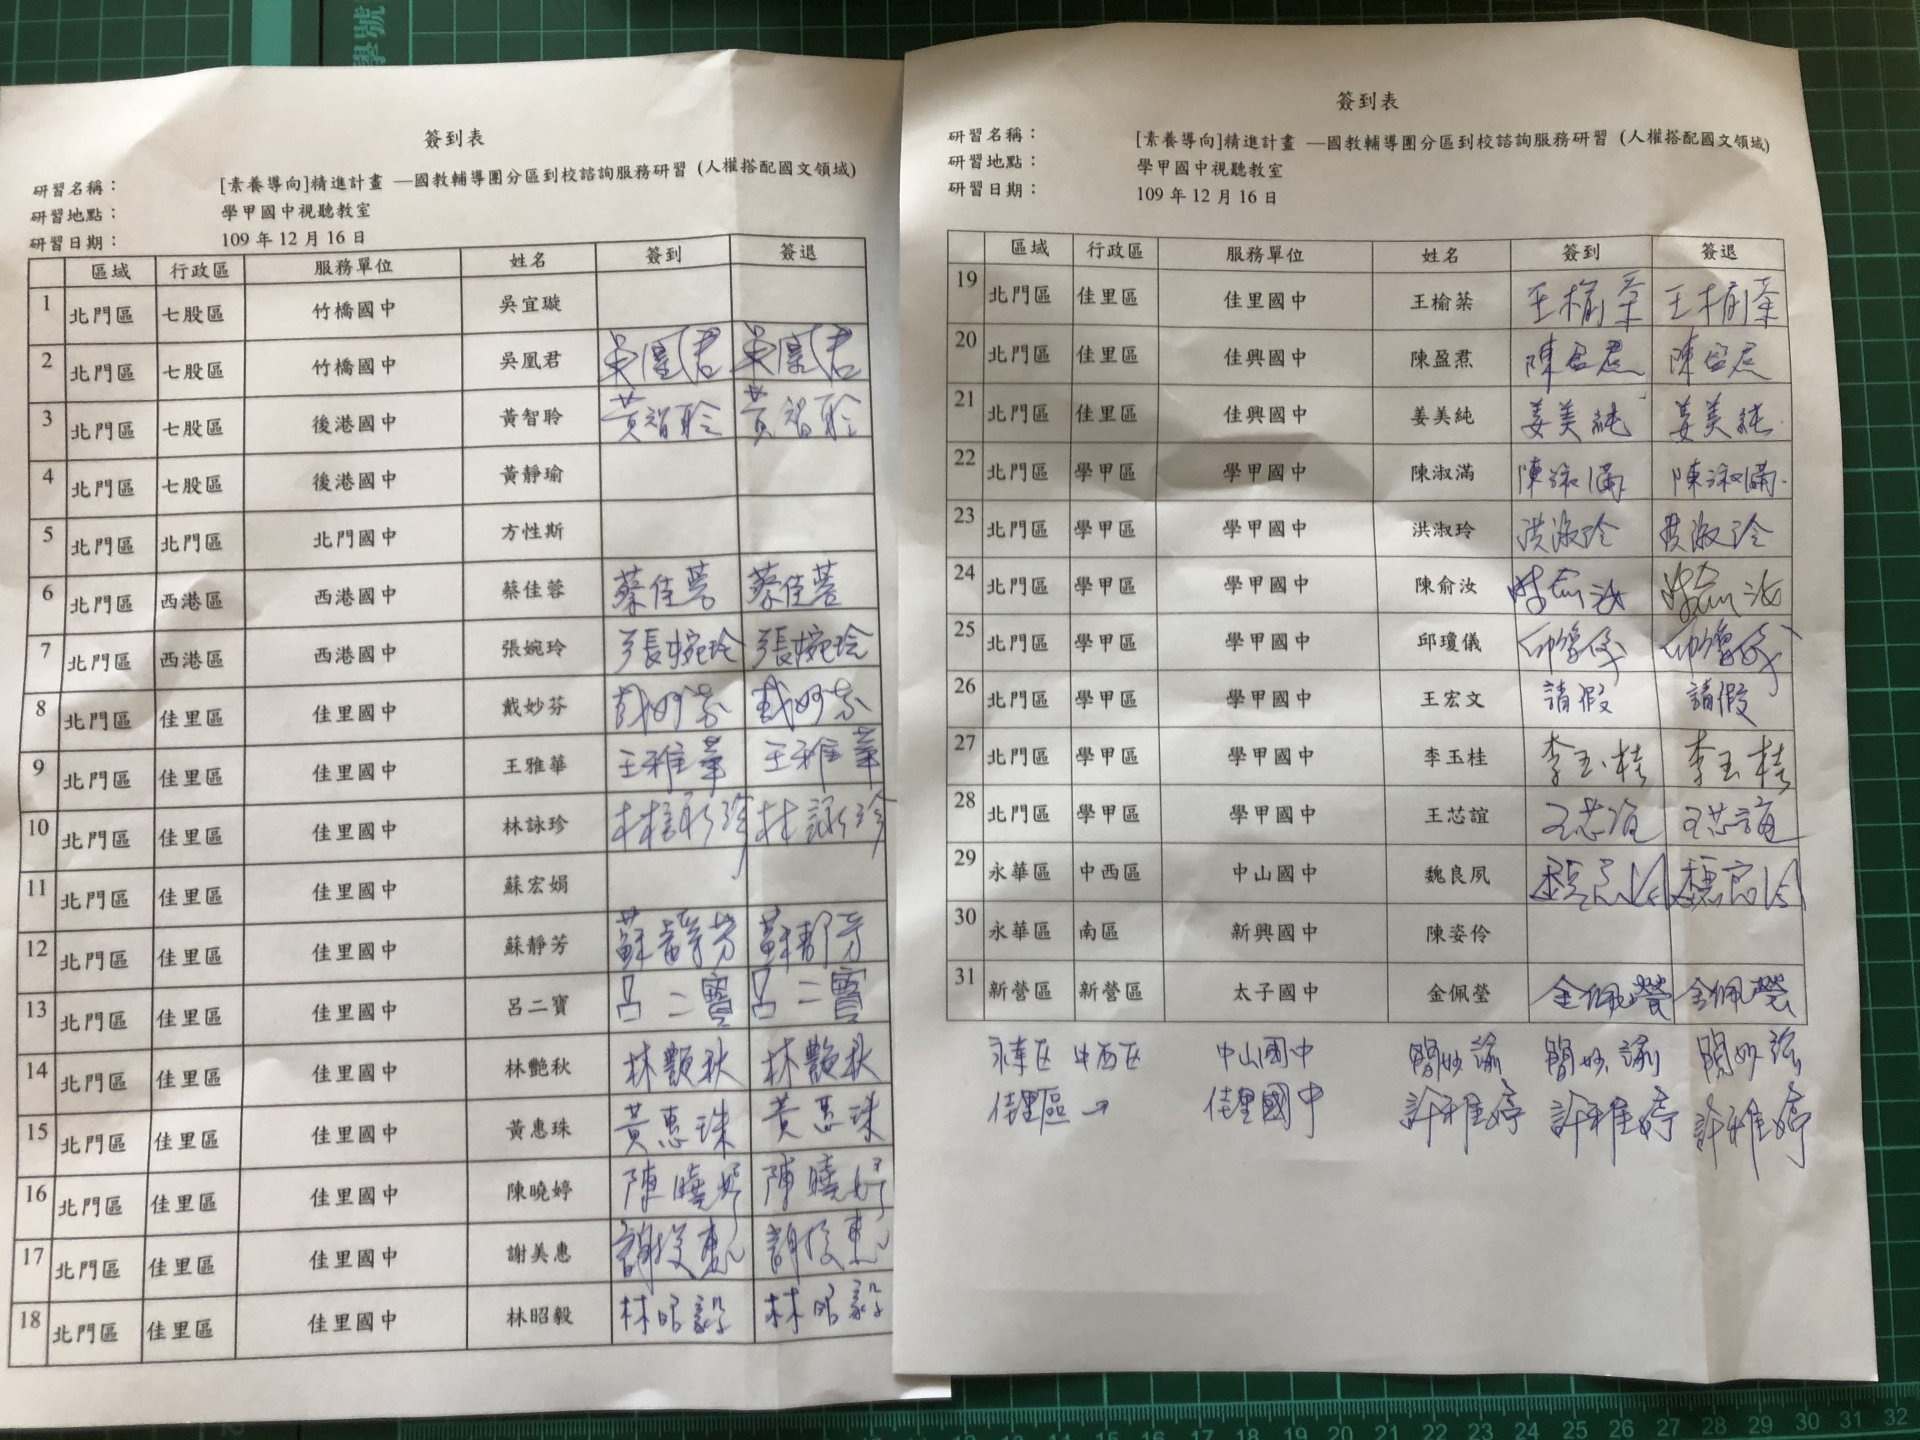 學號
簽到表
研習名稱： [素養導向]精進計畫 —國教輔導團分區到校諮詢服務研習 (人權搭配國文領域)
研習地點： 學甲國中視聽教室
研習日期： 109 年 12 月 16 日
區域 行政區 服務單位 姓名 簽到 簽退
1 北門區 七股區 竹橋國中 吳宜璇
2 北門區 七股區 竹橋國中 吳凰君 吳凰君 吳凰君
3 北門區 七股區 後港國中 黃智聆 黃智聆 黃智聆
4 北門區 七股區 後港國中 黃靜瑜
5 北門區 北門區 北門國中 方性斯
6 北門區 西港區 西港國中 蔡佳蓉 蔡佳蓉 蔡佳蓉
7 北門區 西港區 西港國中 張婉玲 張婉玲 張婉玲
8 北門區 佳里區 佳里國中 戴妙芬 戴妙芬 戴妙芬
9 北門區 佳里區 佳里國中 王雅華 王雅華 王雅華
10 北門區 佳里區 佳里國中 林詠珍 林詠珍 林詠珍
11 北門區 佳里區 佳里國中 蘇宏娟
12 北門區 佳里區 佳里國中 蘇靜芳 蘇靜芳 蘇靜芳
13 北門區 佳里區 佳里國中 呂二寶 呂二寶 呂二寶
14 北門區 佳里區 佳里國中 林艷秋 林艷秋 林艷秋
15 北門區 佳里區 佳里國中 黃惠珠 黃惠珠 黃惠珠
16 北門區 佳里區 佳里國中 陳曉婷 陳曉婷 陳曉婷
17 北門區 佳里區 佳里國中 謝美惠 謝美惠 謝美惠
18 北門區 佳里區 佳里國中 林昭毅 林昭毅 林昭毅
簽到表
研習名稱： [素養導向]精進計畫 —國教輔導團分區到校諮詢服務研習 (人權搭配國文領域)
研習地點： 學甲國中視聽教室
研習日期： 109 年 12 月 16 日
區域 行政區 服務單位 姓名 簽到 簽退
19 北門區 佳里區 佳里國中 王榆棻 王榆棻 王榆棻
20 北門區 佳里區 佳興國中 陳盈焄 陳盈焄 陳盈焄
21 北門區 佳里區 佳興國中 姜美純 姜美純 姜美純
22 北門區 學甲區 學甲國中 陳淑滿 陳淑滿 陳淑滿
23 北門區 學甲區 學甲國中 洪淑玲 洪淑玲 洪淑玲
24 北門區 學甲區 學甲國中 陳俞汝 陳俞汝 陳俞汝
25 北門區 學甲區 學甲國中 邱瓊儀 邱瓊儀 邱瓊儀
26 北門區 學甲區 學甲國中 王宏文 請假 請假
27 北門區 學甲區 學甲國中 李玉桂 李玉桂 李玉桂
28 北門區 學甲區 學甲國中 王芯誼 王芯誼 王芯誼
29 永華區 中西區 中山國中 魏良夙 魏良夙 魏良夙
30 永華區 南區 新興國中 陳姿伶
31 新營區 新營區 太子國中 金佩瑩 金佩瑩 金佩瑩
永華区 中西区 中山國中 簡妙諭 簡妙諭 簡妙諭
佳里區 → 佳里國中 許雅婷 許雅婷 許雅婷
20 21 22 23 24 25 26 27 28 29 30 31 32